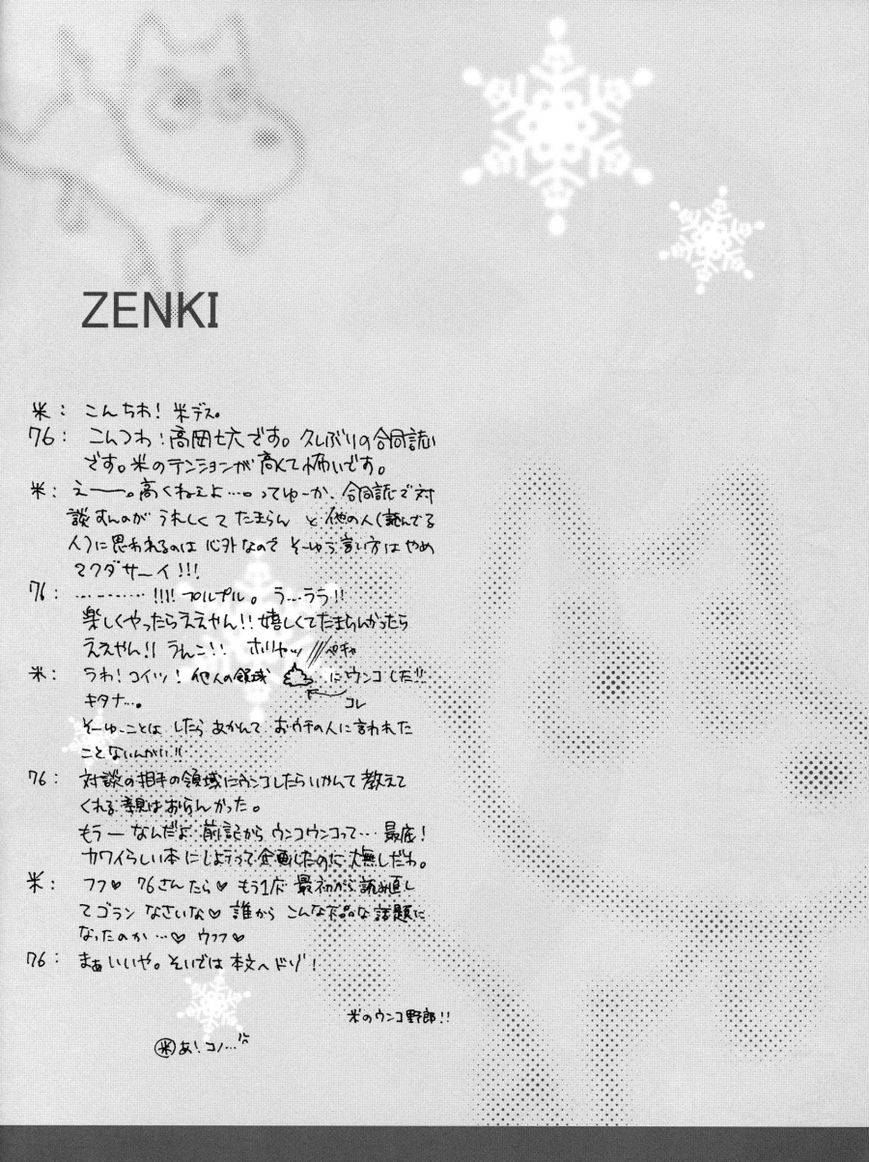 ZENKI
米: こんちわ! 米デス。
76: こんつわ! 高岡七六です。久しぶりの合同誌
です。米のテンションが高くて怖いです。
米: えー。高くねえよ…。ってゆーか、合同誌で対
談すんのが うれしくて たまらん と 他の人(読んでる
人)に思われるのは 心外なので そーゆう言い方は やめ
マクダサーイ!!!
76: …………!!!! プルプル。 ラ…ララ!!
楽しくやったらええやん!! 嬉しくてたまらんかったら
ええやん!! うんこ!! ホリャッ ペチャ
米: うわ! コイツ! 他人の領域 にウンコした!!
キタナ…。 コレ
そーゆーことは したら あかんて おウチの人に言われた
ことないんかい!!
76: 対談の相手の領域にウンコしたらいかんて 教えて
くれる はおらんかった。
もうー なんだよ 前記から ウンコウンコって… 最底!
カワイらしい本 にしようって企画したのに 大無しだわ。
米: フフ♡ 76さんたら♡ もう1度 最初から 読み直し
てゴラン なさいな♡ 誰から こんな下品な話題に
なったのか…♡ ウフフ♡
76: まぁいいや。そいでは 本文へドゾ!
米のウンコ野郎!!
米 あ! コノ…